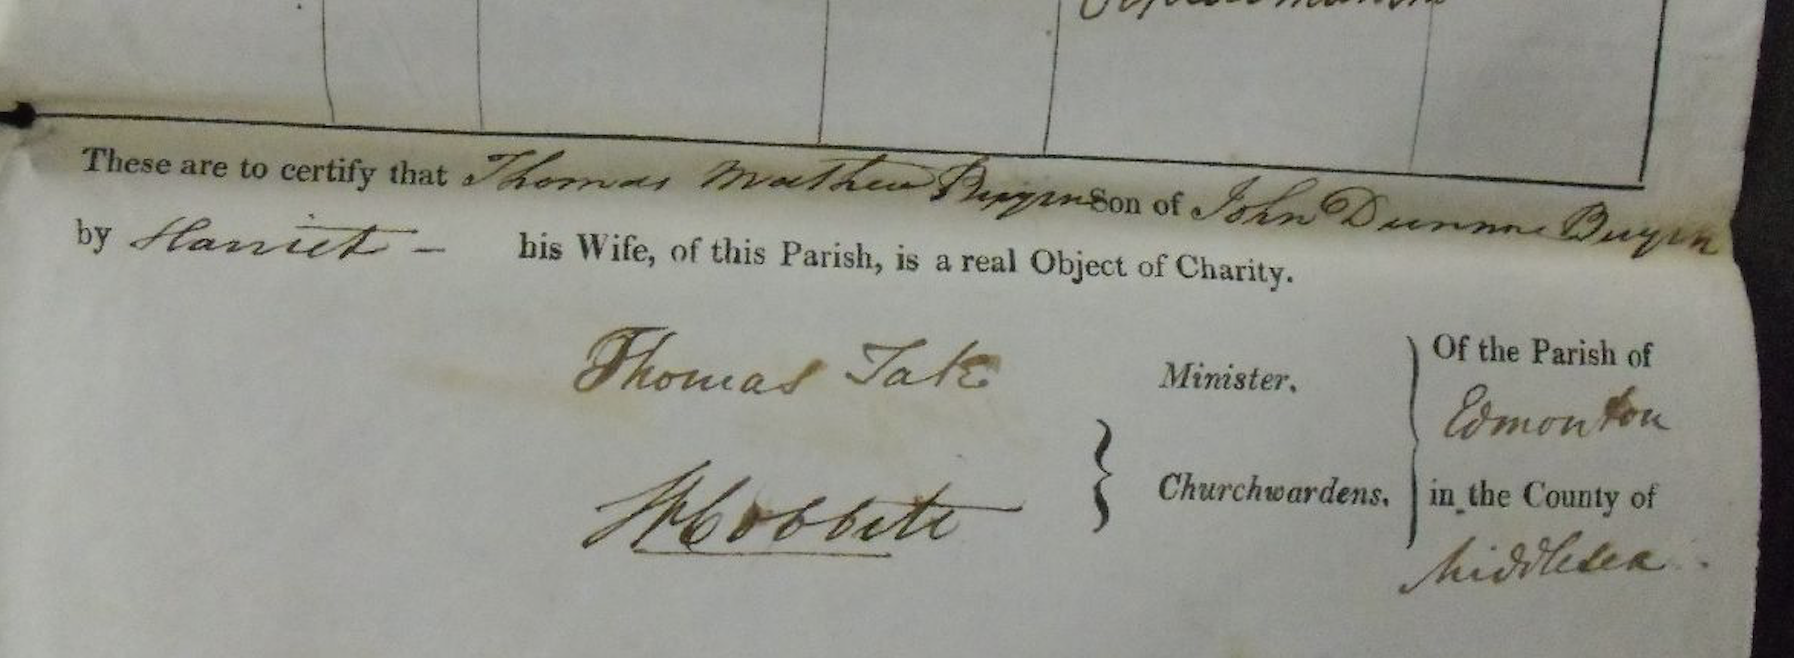 These are to certify that Thomas Mathew Son of John
by Harriet – his Wife, of this Parish, is a real Object of Charity.
Thomas Tate Minister. Of the Parish of
Edmonton
Cobbett Churchwardens. in the County of
Middlesex.